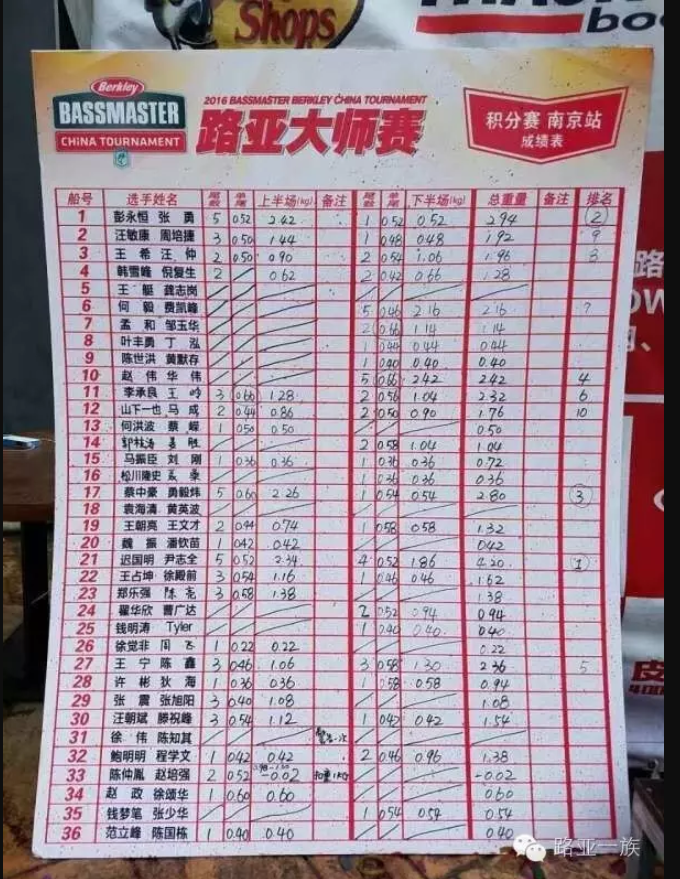 Shops
boo
Berkley
BASSMASTER
CHINA TOURNAMENT
2016 BASSMASTER BERKLEY CHINA TOURNAMENT
路亚大师赛
积分赛 南京站
成绩表
船号 选手姓名 尾数 单尾 上半场(kg) 备注 尾数 单尾 下半场(kg) 总重量 备注 排名
1 彭永恒 张勇 5 0.52 2.42 1 0.52 0.52 2.94 2
2 汪敏康 周培捷 3 0.50 1.44 1 0.48 0.48 1.92 9
3 王希 汪仲 2 0.50 0.90 2 0.54 1.06 1.96 8
4 韩雪峰 倪复生 2 0.62 2 0.42 0.66 1.28
5 王艇 龚志岗
6 何毅 费凯峰 5 0.46 2.16 2.16 7
7 孟和 邹玉华 2 0.66 1.14 1.14
8 叶丰勇 丁泓 1 0.44 0.44 0.44
9 陈世洪 黄默存 1 0.40 0.40 0.40
10 赵伟 华伟 5 0.66 2.42 2.42 4
11 李承良 王 3 0.66 1.28 2 0.56 1.04 2.32 6
12 山下一也 马成 2 0.44 0.86 2 0.50 0.90 1.76 10
13 何洪波 蔡嵘 1 0.50 0.50 0.50
14 郭桂涛 姜胜 2 0.58 1.04 1.04
15 马振臣 刘刚 1 0.36 0.36 1 0.36 0.36 0.72
16 松川隆史 1 0.36 0.36 0.36
17 蔡中豪 勇毅炜 5 0.60 2.26 1 0.54 0.54 2.80 3
18 袁海清 黄英波
19 王朝亮 王文才 2 0.44 0.74 1 0.58 0.58 1.32
20 魏振 潘钦苗 1 0.42 0.42 0.42
21 迟国明 尹志全 5 0.52 2.34 4 0.52 1.86 4.20 1
22 王占坤 徐殿前 3 0.54 1.16 1 0.46 0.46 1.62
23 郑乐强 陈亮 3 0.58 1.38 1.38
24 翟华欣 曹广达 2 0.52 0.94 0.94
25 钱明涛 Tyler 1 0.40 0.40 0.40
26 徐觉非 周飞 1 0.22 0.22 0.22
27 王宁 陈鑫 3 0.46 1.06 3 0.58 1.30 2.36 5
28 许彬 狄海 1 0.36 0.36 1 0.58 0.58 0.94
29 张震 张旭阳 3 0.40 1.08 1.08
30 汪朝斌 滕祝峰 3 0.54 1.12 1 0.42 0.42 1.54
31 徐伟 陈知其 警告一次
32 鲍明明 程学文 1 0.42 0.42 2 0.46 0.96 1.38
33 陈仲胤 赵培强 2 0.52 0.98-1.00 -0.02 扣重1KG -0.02
34 赵政 徐颂华 1 0.60 0.60 0.60
35 钱梦笔 张少华 1 0.54 0.54 0.54
36 范立峰 陈国栋 1 0.40 0.40 0.40
路亚一族